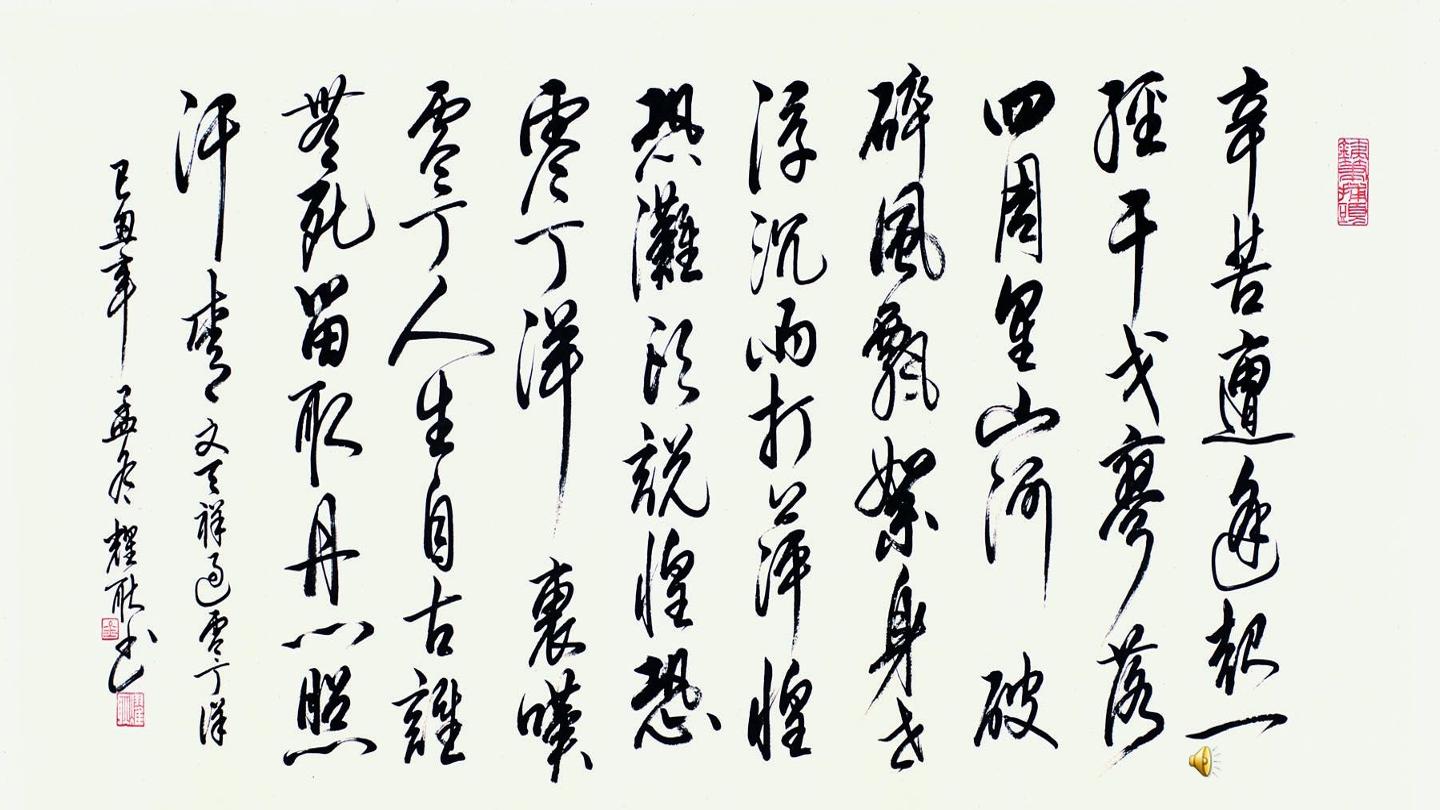 辛苦遭逢起一
經干戈寥落
四周星山河破
碎風飄絮身世
浮沉雨打萍惶
恐灘頭說惶恐
零丁洋裏嘆
零丁人生自古誰
無死留取丹心照
汗青 文天祥過零丁洋
己丑年孟冬耀书